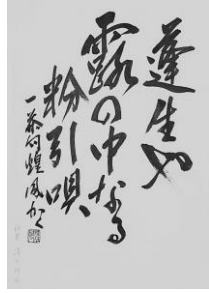 蓬生や
露の中なる
粉引唄
一茶句煌風かく